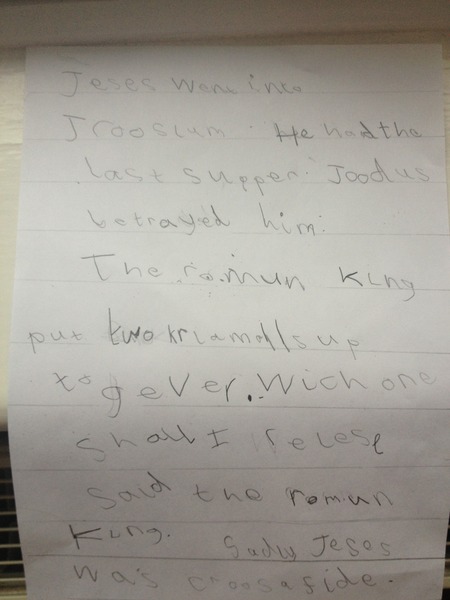 Jeses went into
Jrooslum. He had the
last supper. Joodus
betrayed him.
The romun King
put two kriamalls up
to gever. Wich one
shall I relese
said the romun
King. Sadly Jeses
was croosafide.